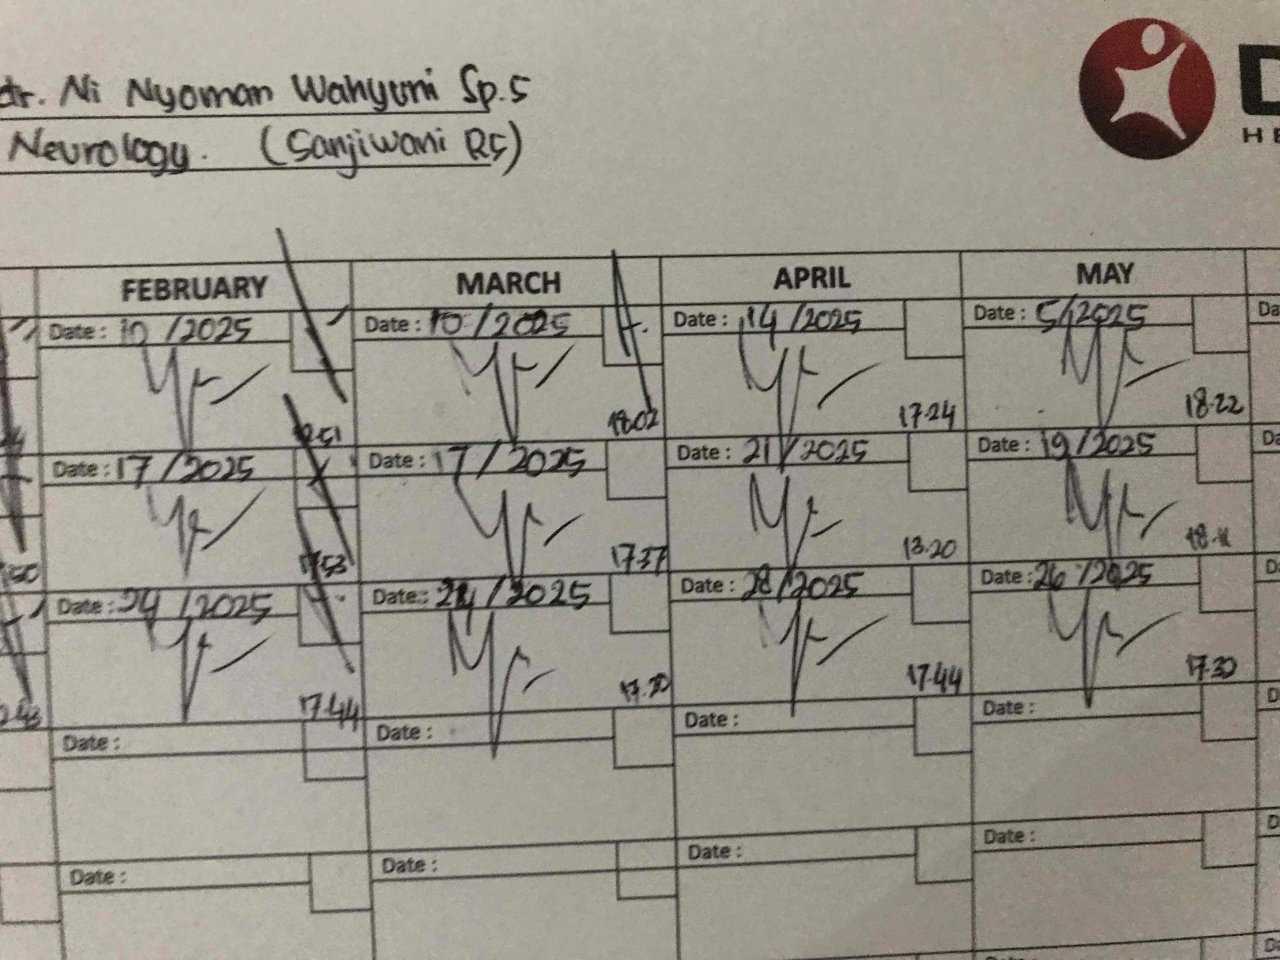 dr. Ni Nyoman Wahyuni Sp.S
Neurology. (Sanjiwani RS)
D
HE
FEBRUARY MARCH APRIL MAY
Date: 10 /2025 Date: 10 /2025 Date: 14 /2025 Date: 5/2025 Da
18.02 17.24 18.22
Date: 17 /2025 Date: 17 / 2025 Date: 21 / 2025 Date: 19/2025 Da
17.53 17.37 13.20
Date: 24 /2025 Date: 24 /2025 Date: 28 /2025 Date: 26 /2025 Da
17.44 17.44 17.30
Date: Date: Date: Date: D
Date: Date: Date: Date: D